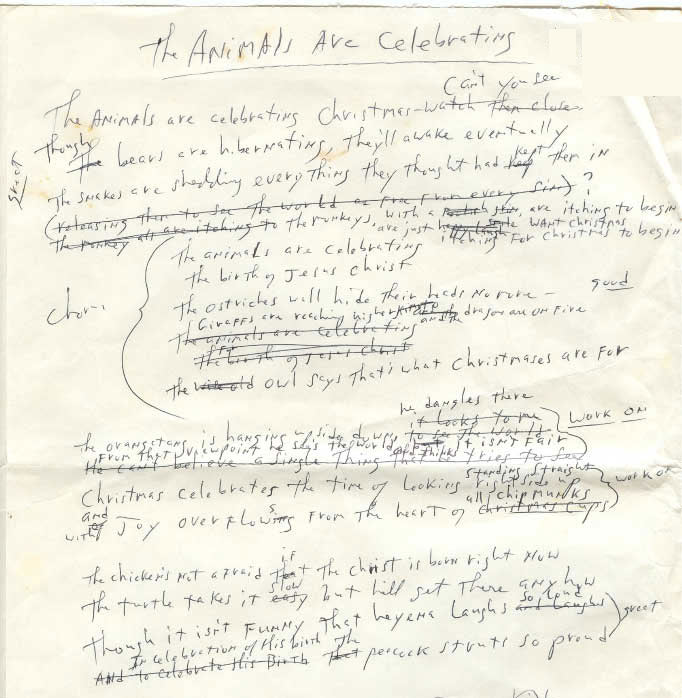 The Animals Are Celebrating
Can't you see
The Animals are celebrating Christmas - watch them close
Though
The bears are hibernating, they'll awake eventually
kept
The snakes are shedding everything they thought had them in
great
(releasing them to see the world as free from every sin) ?
The monkey all are itching to The monkeys, with a, are itching to begin
are just WANT Christmas
itching FOR Christmas to begin
The animals are celebrating
the birth of Jesus Christ
chor.
The ostriches will hide their heads no more - good
Giraffs are reaching higher and the dragon are on Fire
The animals are celebrating
The birth of Jesus Christ
the wise old owl says that's what Christmases are For
he dangles there
it looks to me
WORK ON
The orangetang is hanging upside down, to see the world
From that viewpoint he sees the world and thinks it isn't FAir
He can't believe a single thing that he tries to see
standing straight
Christmas celebrates the time of looking right side up
work on
all chipmunks
and
with Joy overflowing From the heart of Christmas Cups
if
The chicken's not afraid that the Christ is born right now
slow
The turtle takes it easy but hill get there any how
so loud
Though it isn't Funny that heyena laughs and laughs
great
In celebration of His birth The
And to celebrate His Birth that peacock struts so proud